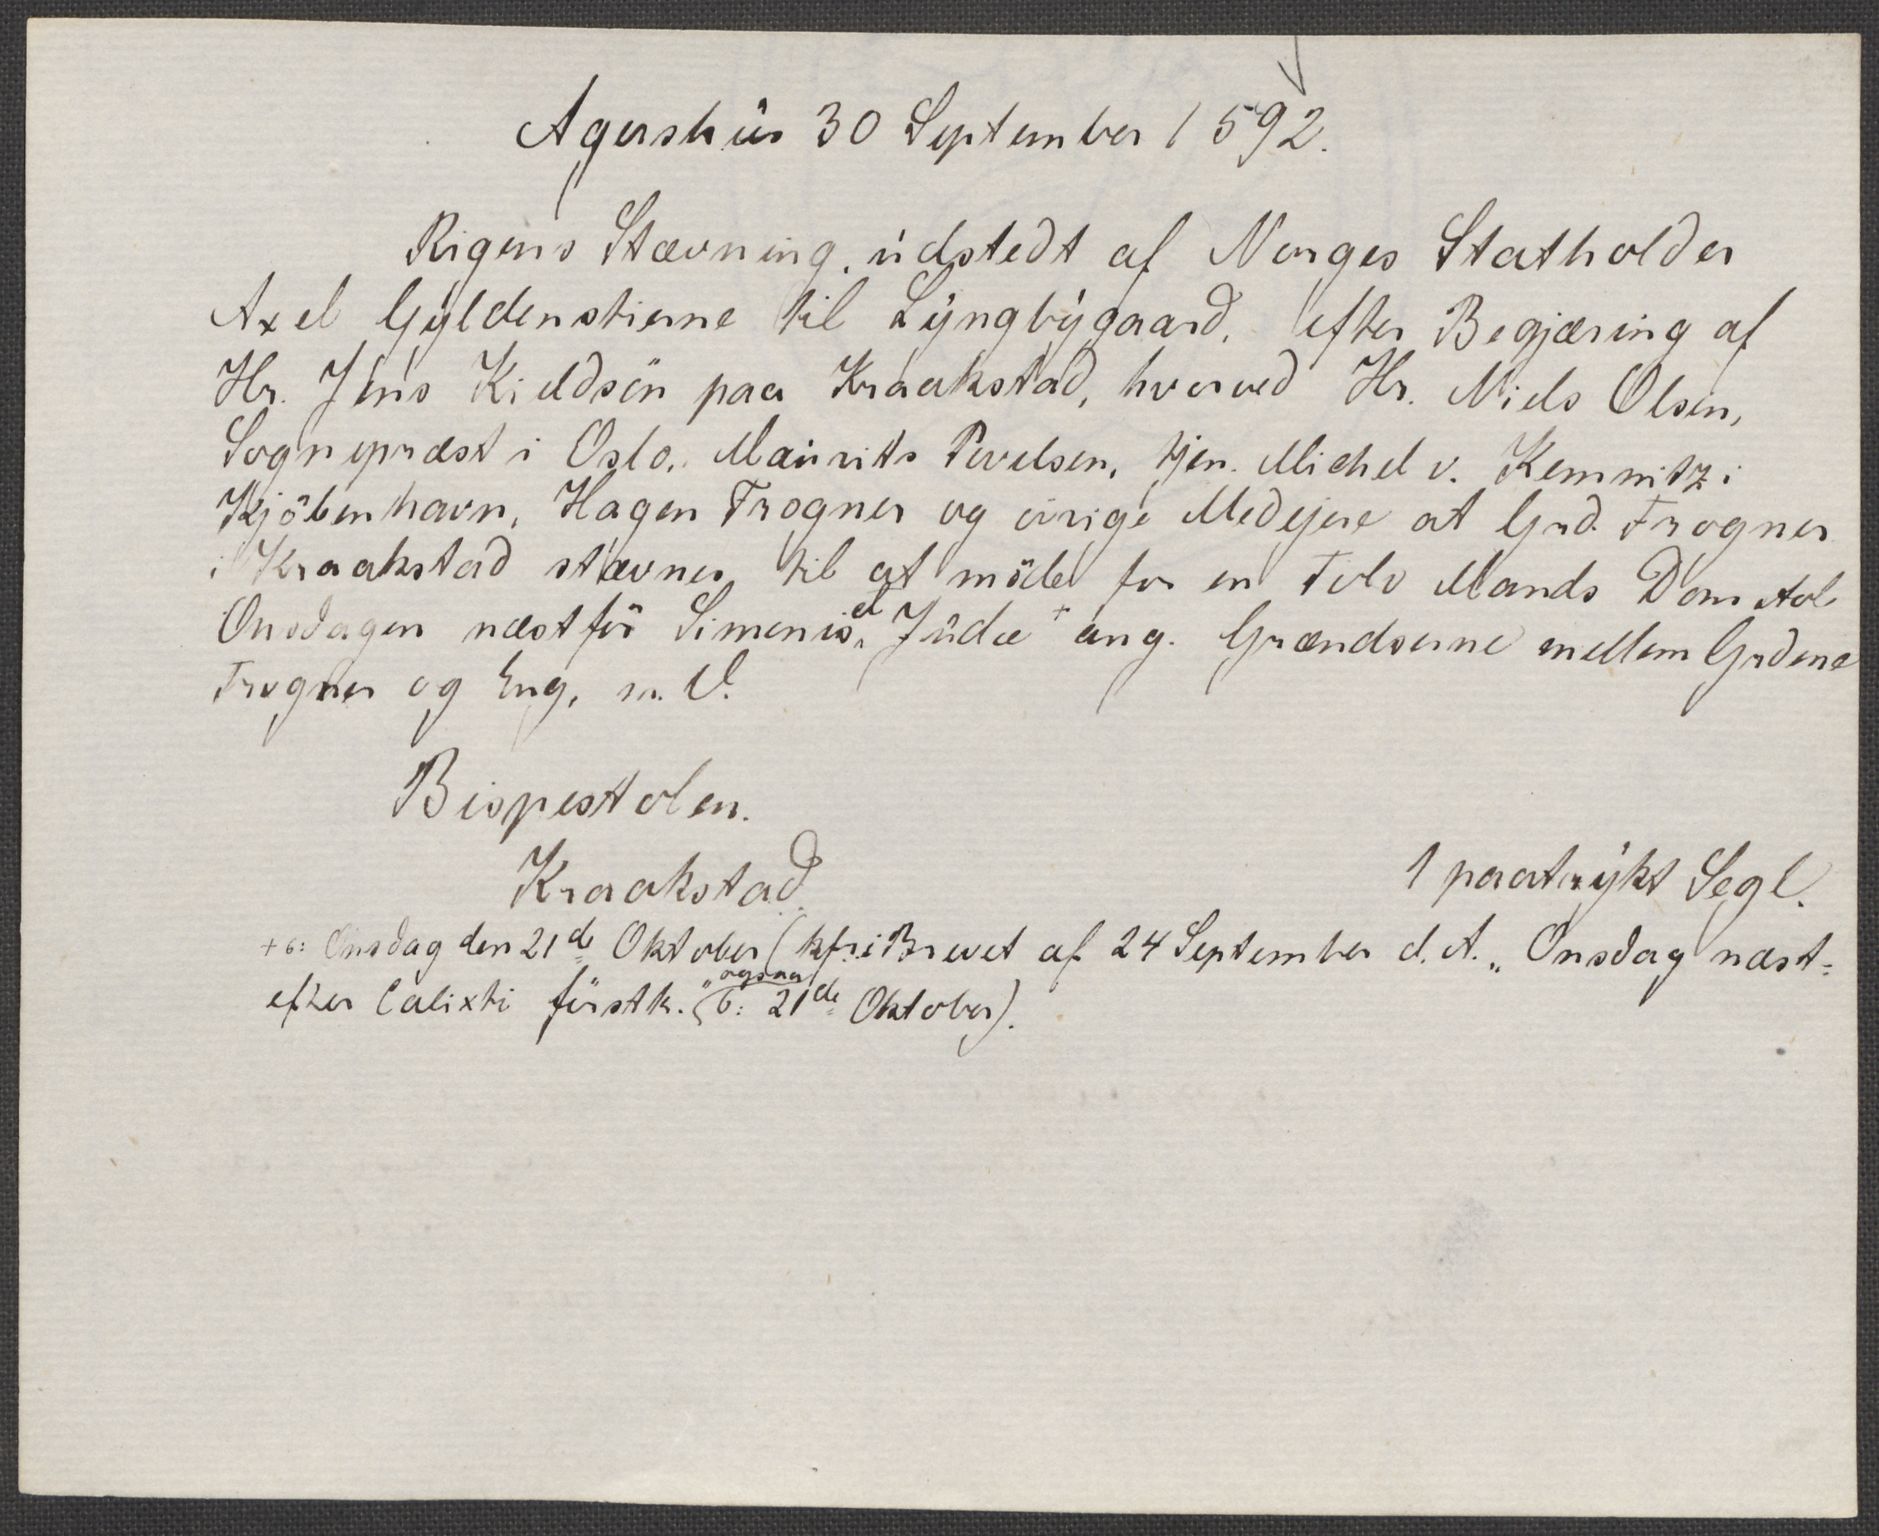 Agershus 30 September 1592.
Rigens Stævning, udstedt af Norges Statholder
Axel Gyldenstierne til Lyngbygaard, efter Begjæring af
Hr. Jens Kieldsön paa Kraakstad, hvorved Hr. Niels Olsen,
Sognepræst i Oslo, Maurits Povelsen, tjen. Michel v. Kemnitz i
Kjöbenhavn, Hagen Frogner og övrige Medejere at Grd. Frogner
i Kraakstad stævnes til at möde for en Tolv Mands Domstol
Onsdagen næstför Simonis et Judæ + ang. Grændserne mellem Grdene
Frogner og Eng, m. V.
Bispestolen.
Kraakstad.
1 paatrykt Segl.
+ ɔ: Onsdag den 21de Oktober (kfr. i Brevet af 24 September d. A. „Onsdag næst-
efter Calixti förstk." ogsaa ɔ: 21de Oktober).